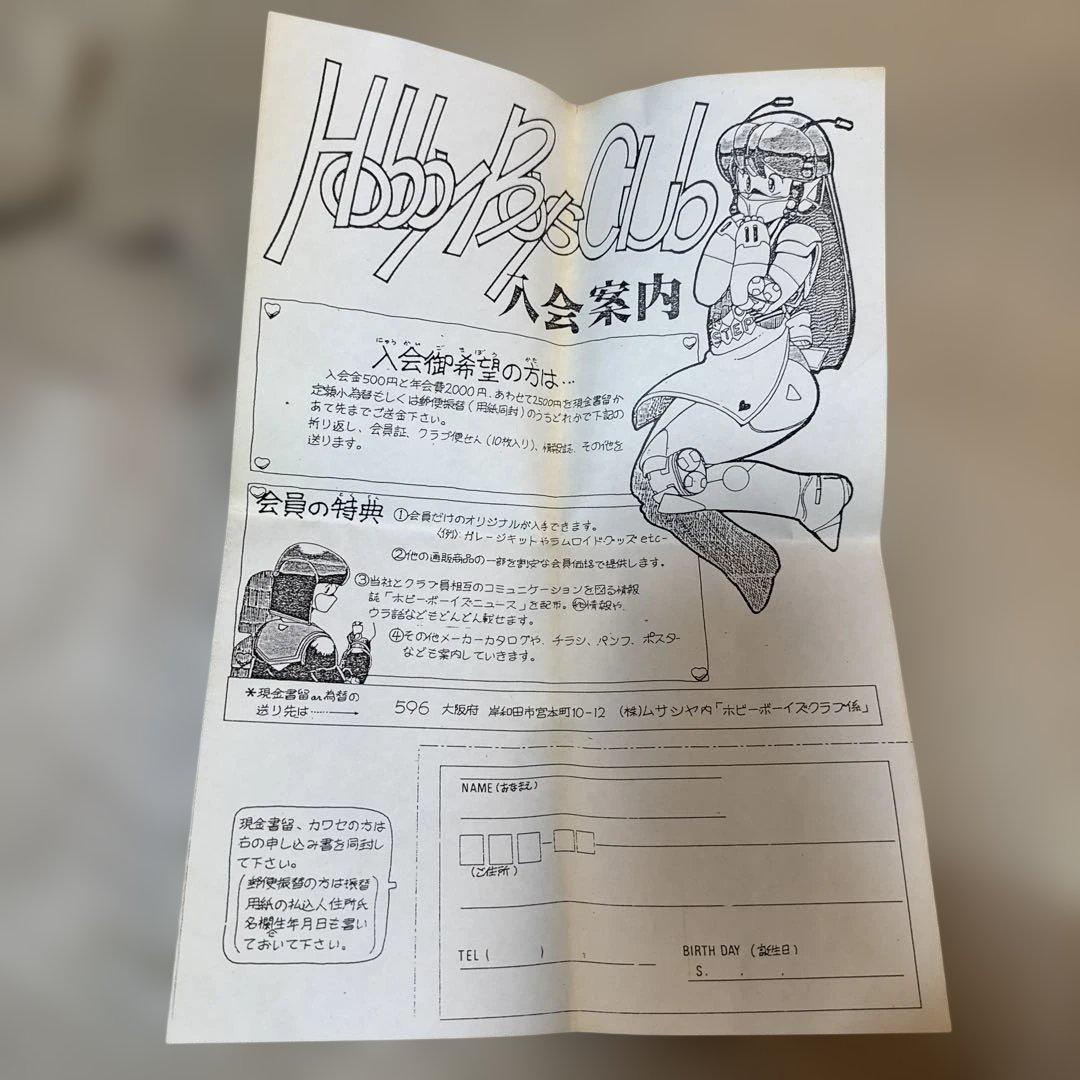 Hobby Boy's Club
入会案内
入会御希望の方は…
にゅうかい ご きぼう かた
入会金500円と年会費2000円、あわせて2500円を現金書留か
定額小為替もしくは郵便振替(用紙同封)のうちどれかで下記の
あて先までご送金下さい。
折り返し、会員証、クラブ便せん(10枚入り)、情報誌、その他を
送ります。
会員の特典
①会員だけのオリジナルが入手できます。
〈例〉:ガレージキットやラムロイドグッズetc-
②他の通販商品の一部を割安な会員価格で提供します。
③当社とクラブ員相互のコミュニケーションを図る情報
誌「ホビーボーイズニュース」を配布。㊙情報や、
ウラ話などもどんどん載せます。
④その他メーカーカタログや、チラシ、パンフ、ポスター
なども案内していきます。
*現金書留or為替の
送り先は……→
596 大阪府 岸和田市宮本町10-12 (株)ムサシヤ内「ホビーボーイズクラブ係」
現金書留、カワセの方は
右の申し込み書を同封し
て下さい。
(郵便振替の方は振替
用紙の払込人住所氏
名欄で生年月日も書い
ておいて下さい。)
NAME(おなまえ)
(ご住所)
TEL( )
BIRTH DAY (誕生日)
S. . .